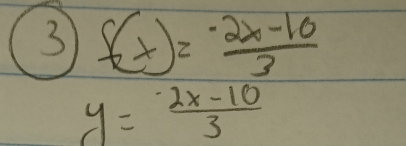 ③ f(x) = (-2x-10)/3
y = (-2x-10)/3